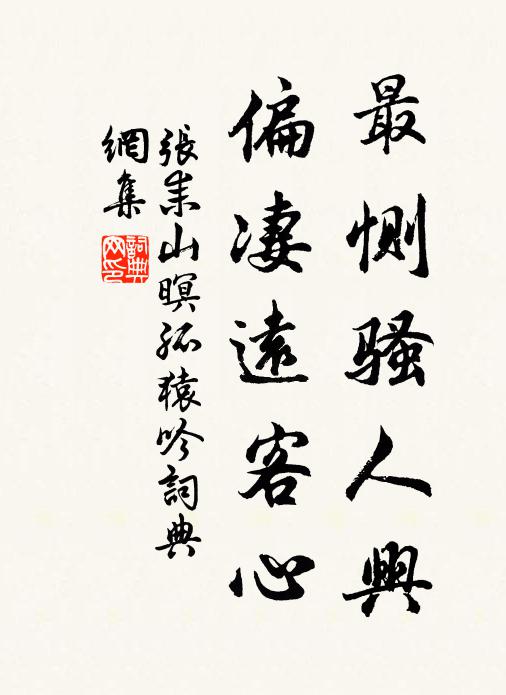 最惻騷人興
偏凄遠客心
張耒山暝孤猿吟詞典
網集
詞典
网印